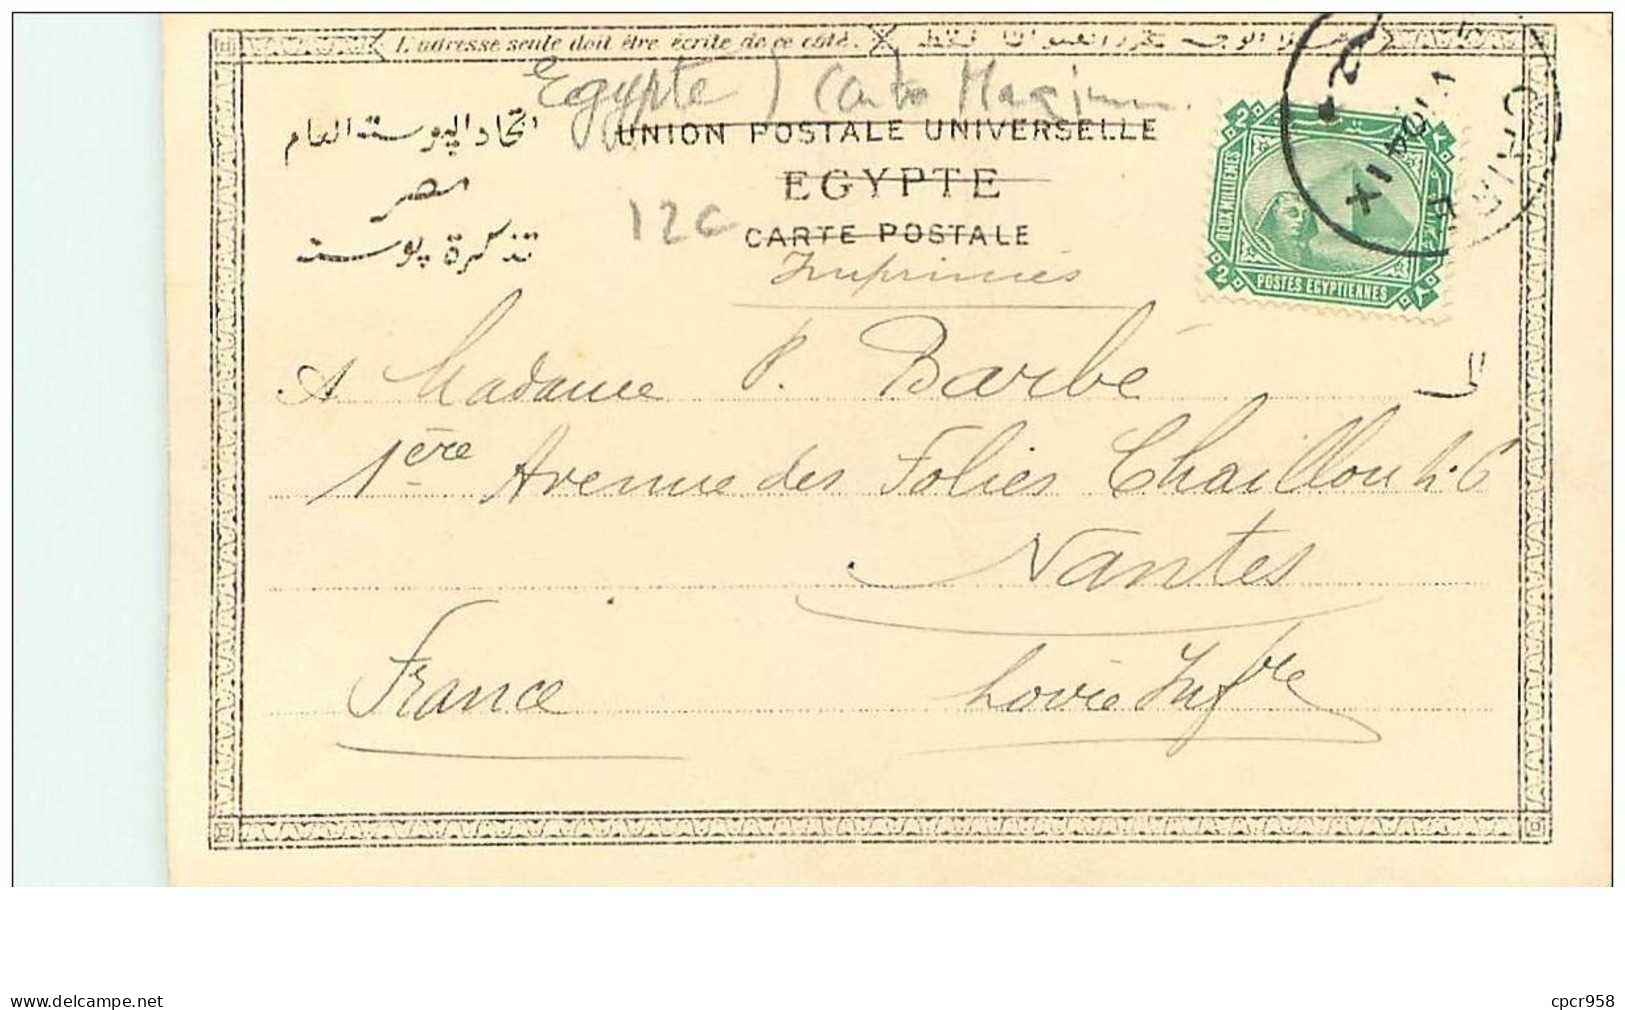 L'adresse seule doit être écrite de ce côté.
Egypte / Carto
اتحاد البوسته العام
UNION POSTALE UNIVERSELLE
مصر
EGYPTE
تذكرة بوسته
12c
CARTE POSTALE
Imprimés
2 2
DEUX MILLIEMES
POSTES EGYPTIENNES
2
CAIRE
IX 04
A Madame P. Barbé الى
1ère Avenue des Folies Chaillou N. 6
Nantes
France Loire Infre
www.delcampe.net
cpcr958